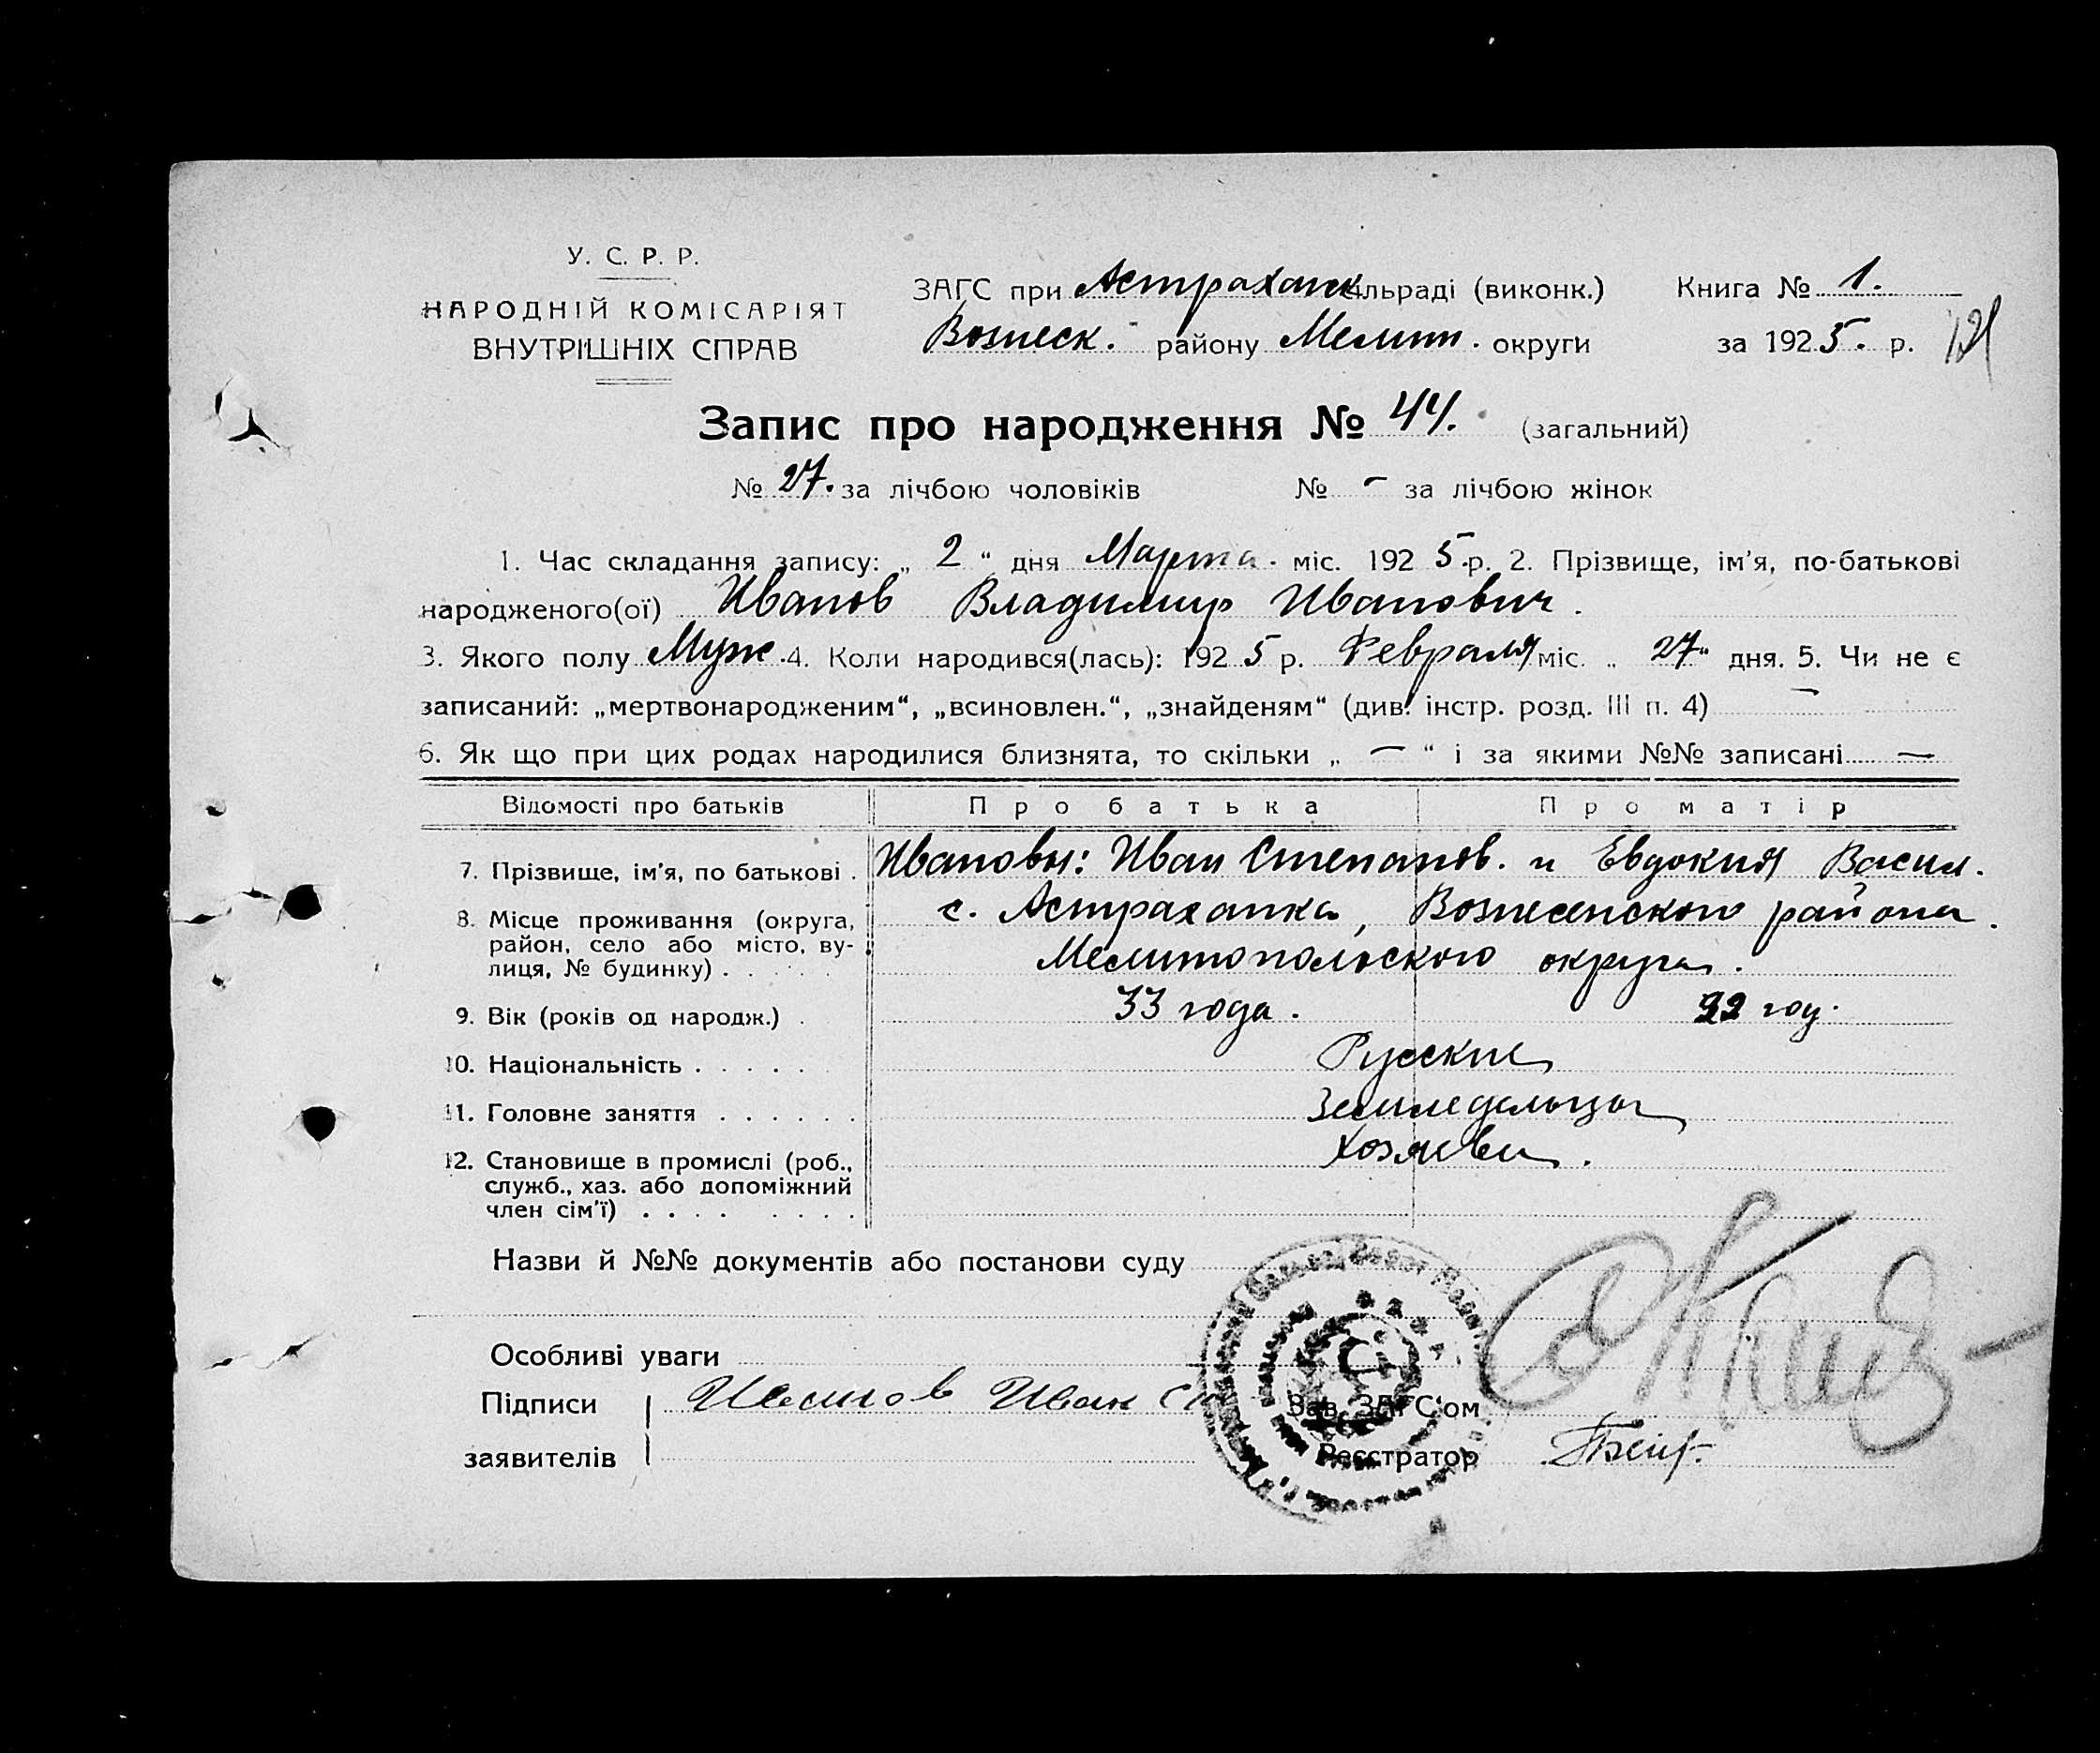 У. С. Р. Р.
НАРОДНІЙ КОМІСАРІЯТ
ВНУТРІШНІХ СПРАВ
ЗАГС при Астраханск ільраді (виконк.) Книга № 1.
Вознеск. району Мелит. округи за 1925. р.
Запис про народження № 44. (загальний)
№ 27. за лічбою чоловіків № - за лічбою жінок
1. Час складання запису: „ 2 “ дня Марта. міс. 1925 р. 2. Прізвище, ім'я, по-батькові
народженого(ої) Иванов Владимир Иванович.
3. Якого полу Муж. 4. Коли народився(лась): 1925 р. Февраля міс. „ 27 “ дня. 5. Чи не є
записаний: „мертвонародженим“, „всиновлен.“, „знайденям“ (див. інстр. розд. III п. 4) —
6. Як що при цих родах народилися близнята, то скільки „ — “ і за якими №№ записані —
Відомості про батьків Про батька Про матір
7. Прізвище, ім'я, по батькові . Ивановы: Иван Степанов. и Евдокия Васил.
8. Місце проживання (округа, район, село або місто, вулиця, № будинку) . с. Астраханка, Вознесенского района.
Мелитопольского округа.
9. Вік (років од народж.) . 33 года. год.
10. Національність . . . . . . Русские
11. Головне заняття . . . . . . Земледельцы
12. Становище в промислі (роб., служб., хаз. або допоміжний член сім'ї) . . . . Хозяева.
Назви й №№ документів або постанови суду
Особливі уваги
Підписи Иванов Иван Ст Зав. ЗАГС'ом
заявителів Реєстратор